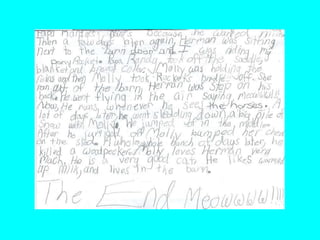 because he wanted milk
Then a few days later again Herman was sitting
next to the barn door and I was riding my
Pony Rocket. Randa took off the saddle
blanket and Molly was holding the
reins and then Molly took Rockets bridle off. She
ran out of the barn, Herman was step on his
back. He went flying in the air saying, meanwhile
Now, He runs, whenever he sees the horses. A
lot of days later he went sledding down a big pile of
snow with Molly, he jumped off in the middle
After he jumped off Molly bumped her chin
on the sled. A whole bunch of days later, he
killed a woodpecker. Molly loves Herman very
Much. He is a very good cat. He likes warmed
up milk, and lives in the barn.
The End Meowwww!!!!